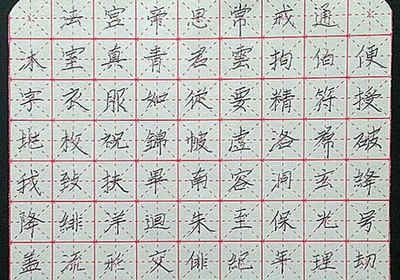 法宫帝思常戒通
沐室真青君雲拘伯便
字衣服如従要精符授
地枚祝錦帔虚洛席破
我致扶畢南容洞玄絳
降緋洋迴朱至保光号
盖流形交俳紀年理劫